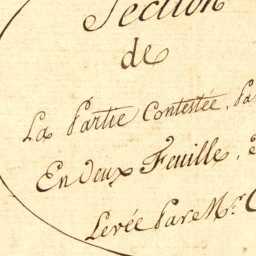 Section
de
La Partie Contestée, Pa
En deux Feuille,
Levée Par Mr.